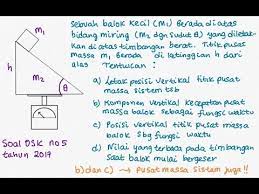 Sebuah balok kecil (M₁) Berada di atas
bidang miring (M₂ dan sudut θ) yang dile-
kan di atas timbangan berat. Titik pusat
massa m₁ Berada di ketinggian h dari
alas Tentukan :
a) Letak posisi vertikal titik pusat massa sistem tsb
b) Komponen vertikal kecepatan pusat massa balok sebagai fungsi waktu
c) Posisi vertikal titik pusat massa balok sbg fungsi waktu
d) Nilai yang terbaca pada timbangan saat balok mulai bergeser
b) dan c) → pusat massa sistem juga !!
m₁
h
m₂
θ
Soal OSK no 5
tahun 2017